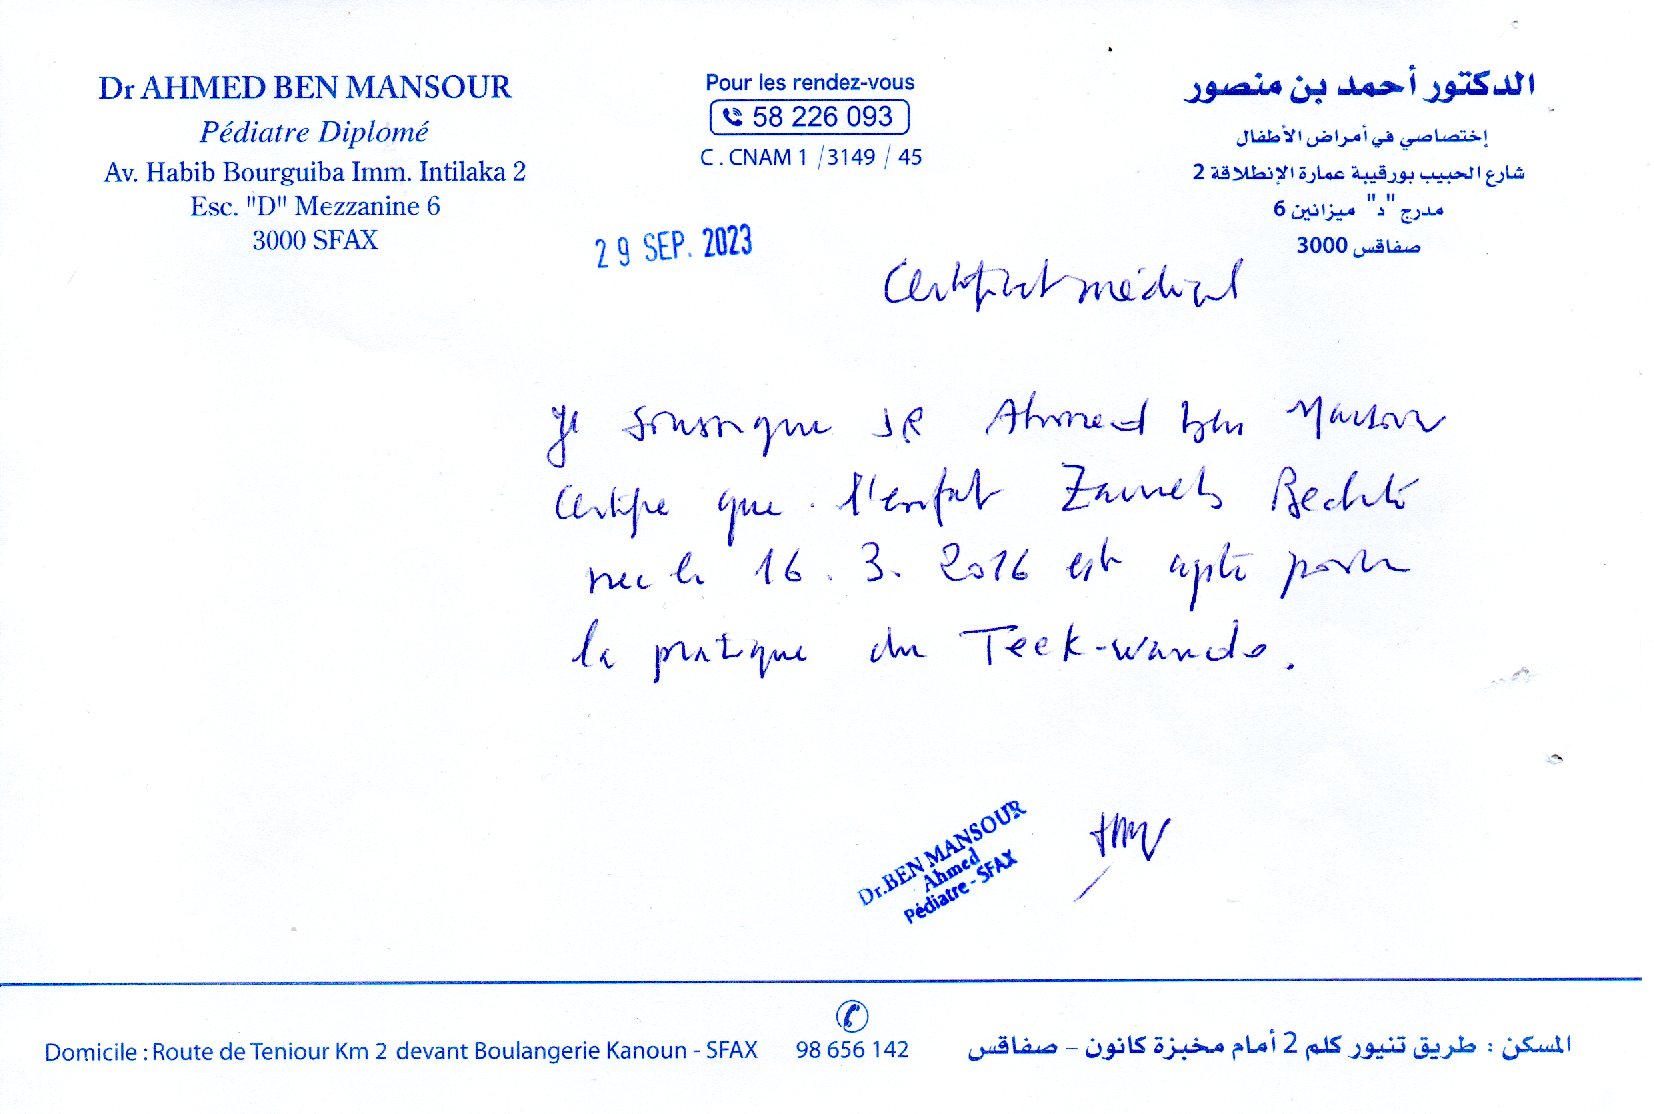 Dr AHMED BEN MANSOUR
Pédiatre Diplomé
Av. Habib Bourguiba Imm. Intilaka 2
Esc. "D" Mezzanine 6
3000 SFAX
Pour les rendez-vous
58 226 093
C . CNAM 1 /3149 / 45
الدكتور أحمد بن منصور
إختصاصي في أمراض الأطفال
شارع الحبيب بورقيبة عمارة الإنطلاقة 2
مدرج "د" ميزانين 6
صفاقس 3000
29 SEP. 2023
Certificat médical
Je soussigne DR Ahmed ben Mansour
certifie que l'enfant
nee le 16 . 3. 2016 est apte pour
la pratique du Teek-wando.
Dr.BEN MANSOUR
Ahmed
Pédiatre - SFAX
Domicile : Route de Teniour Km 2 devant Boulangerie Kanoun - SFAX
98 656 142
المسكن : طريق تنيور كلم 2 أمام مخبزة كانون – صفاقس